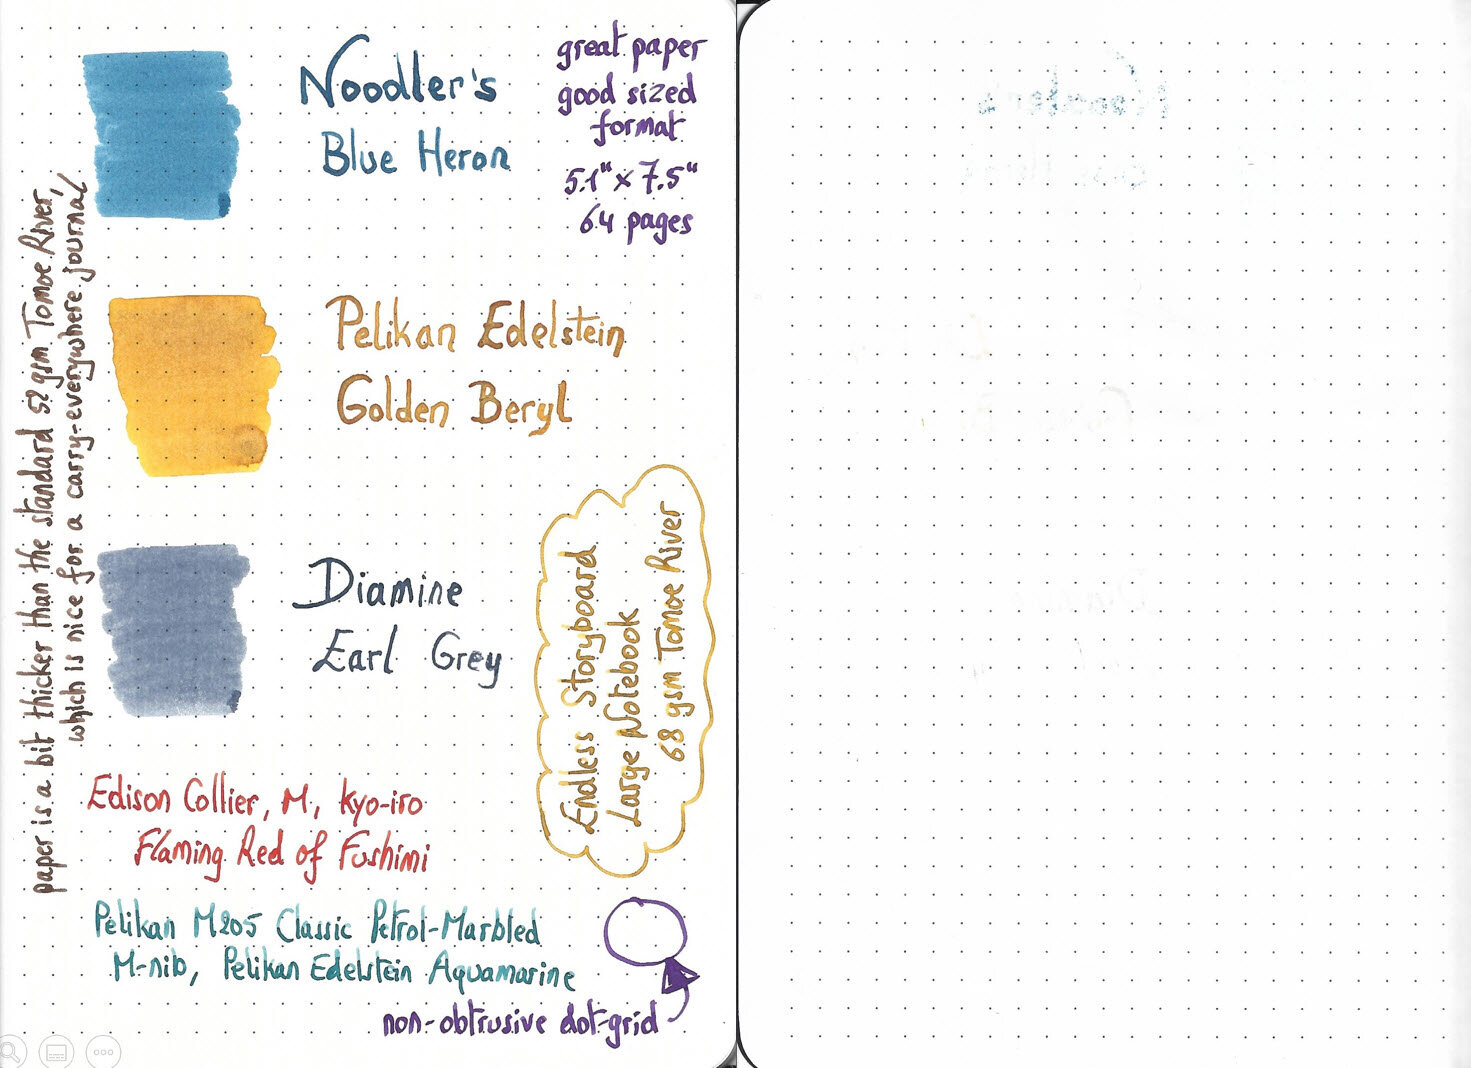 Noodler's
Blue Heron
great paper
good sized
format
5.1" x 7.5"
64 pages
Pelikan Edelstein
Golden Beryl
Diamine
Earl Grey
Endless Storyboard
Large Notebook
68 gsm Tomoe River
paper is a bit thicker than the standard 52 gsm Tomoe River,
which is nice for a carry-everywhere journal
Edison Collier, M, kyo-iro
Flaming Red of Fushimi
Pelikan M205 Classic Petrol-Marbled
M-nib, Pelikan Edelstein Aquamarine
non-obtrusive dot-grid